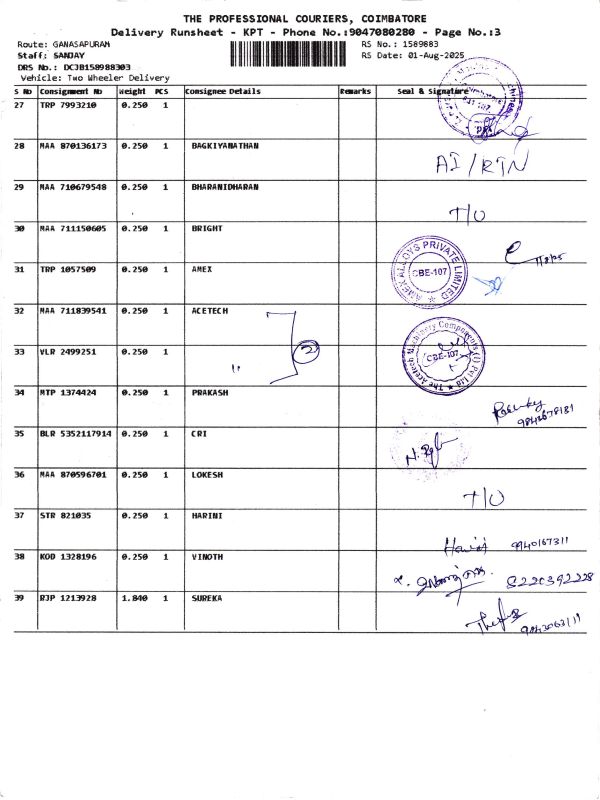 THE PROFESSIONAL COURIERS, COIMBATORE
Delivery Runsheet - KPT - Phone No.:9047080280 - Page No.:3
Route: GANASAPURAM RS No.: 1589883
Staff: SANJAY RS Date: 01-Aug-2025
DRS No.: DCJB158988303
Vehicle: Two Wheeler Delivery
S No Consignment No Weight PCS Consignee Details Remarks Seal & Signature
27 TRP 7993210 0.250 1
28 MAA 870136173 0.250 1 BAGKIYANATHAN AI/RTN
29 MAA 710679548 0.250 1 BHARANIDHARAN T/O
30 MAA 711150605 0.250 1 BRIGHT
31 TRP 1057509 0.250 1 AMEX AMEX ALLOYS PRIVATE LIMITED CBE-107
32 MAA 711839541 0.250 1 ACETECH
33 VLR 2499251 0.250 1 " 2 The Acetech Machinery Components (I) Pvt Ltd CBE-107
34 MTP 1374424 0.250 1 PRAKASH 9842678181
35 BLR 5352117914 0.250 1 CRI
36 MAA 870596701 0.250 1 LOKESH T/O
37 STR 821035 0.250 1 HARINI Harini 9940167311
38 KOD 1328196 0.250 1 VINOTH 8220392228
39 RJP 1213928 1.840 1 SUREKA